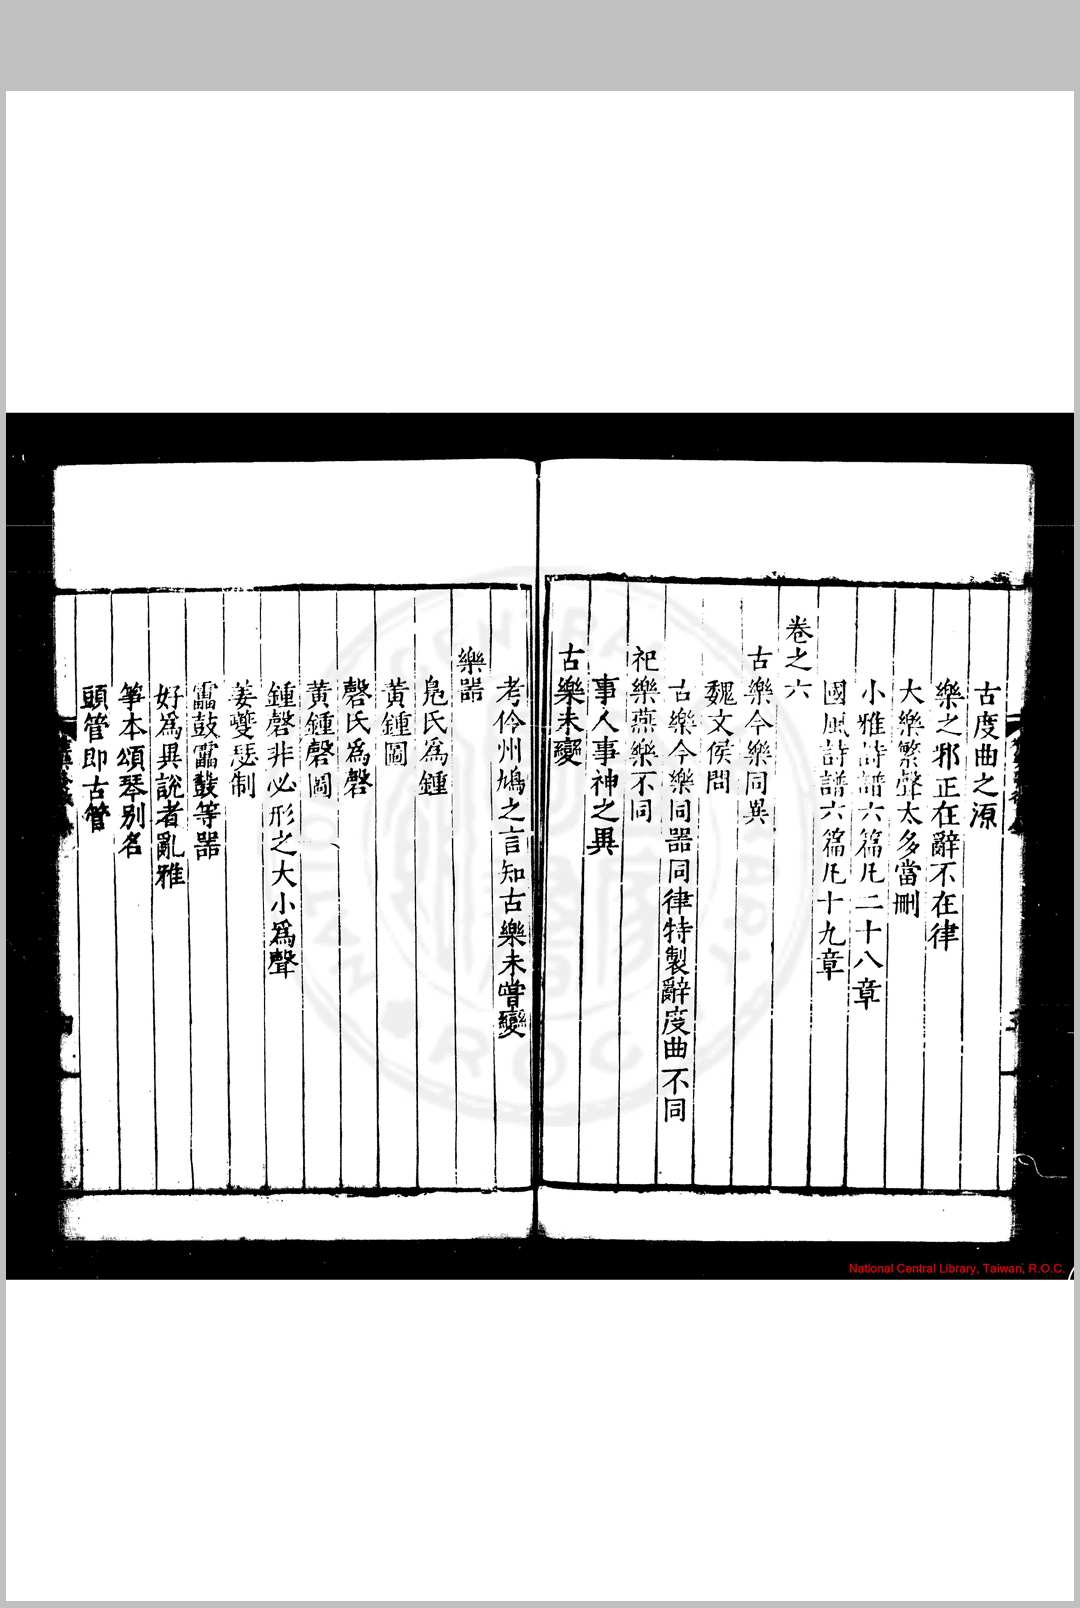 古度曲之源
樂之邪正在辭不在律
大樂繁聲太多當刪
小雅詩譜六篇凡二十八章
國風詩譜六篇凡十九章
卷之六
古樂今樂同異
魏文侯問
古樂今樂同器同律特製辭度曲不同
祀樂燕樂不同
事人事神之異
古樂未變
考伶州鳩之言知古樂未嘗變
樂器
鳧氏爲鍾
黃鍾圖
磬氏爲磬
黃鍾磬圖
鍾磬非必形之大小爲聲
姜夔瑟制
靁鼓靁鼗等器
好爲異說者亂雅
箏本頌琴别名
頭管即古管
National Central Library, Taiwan, R.O.C.